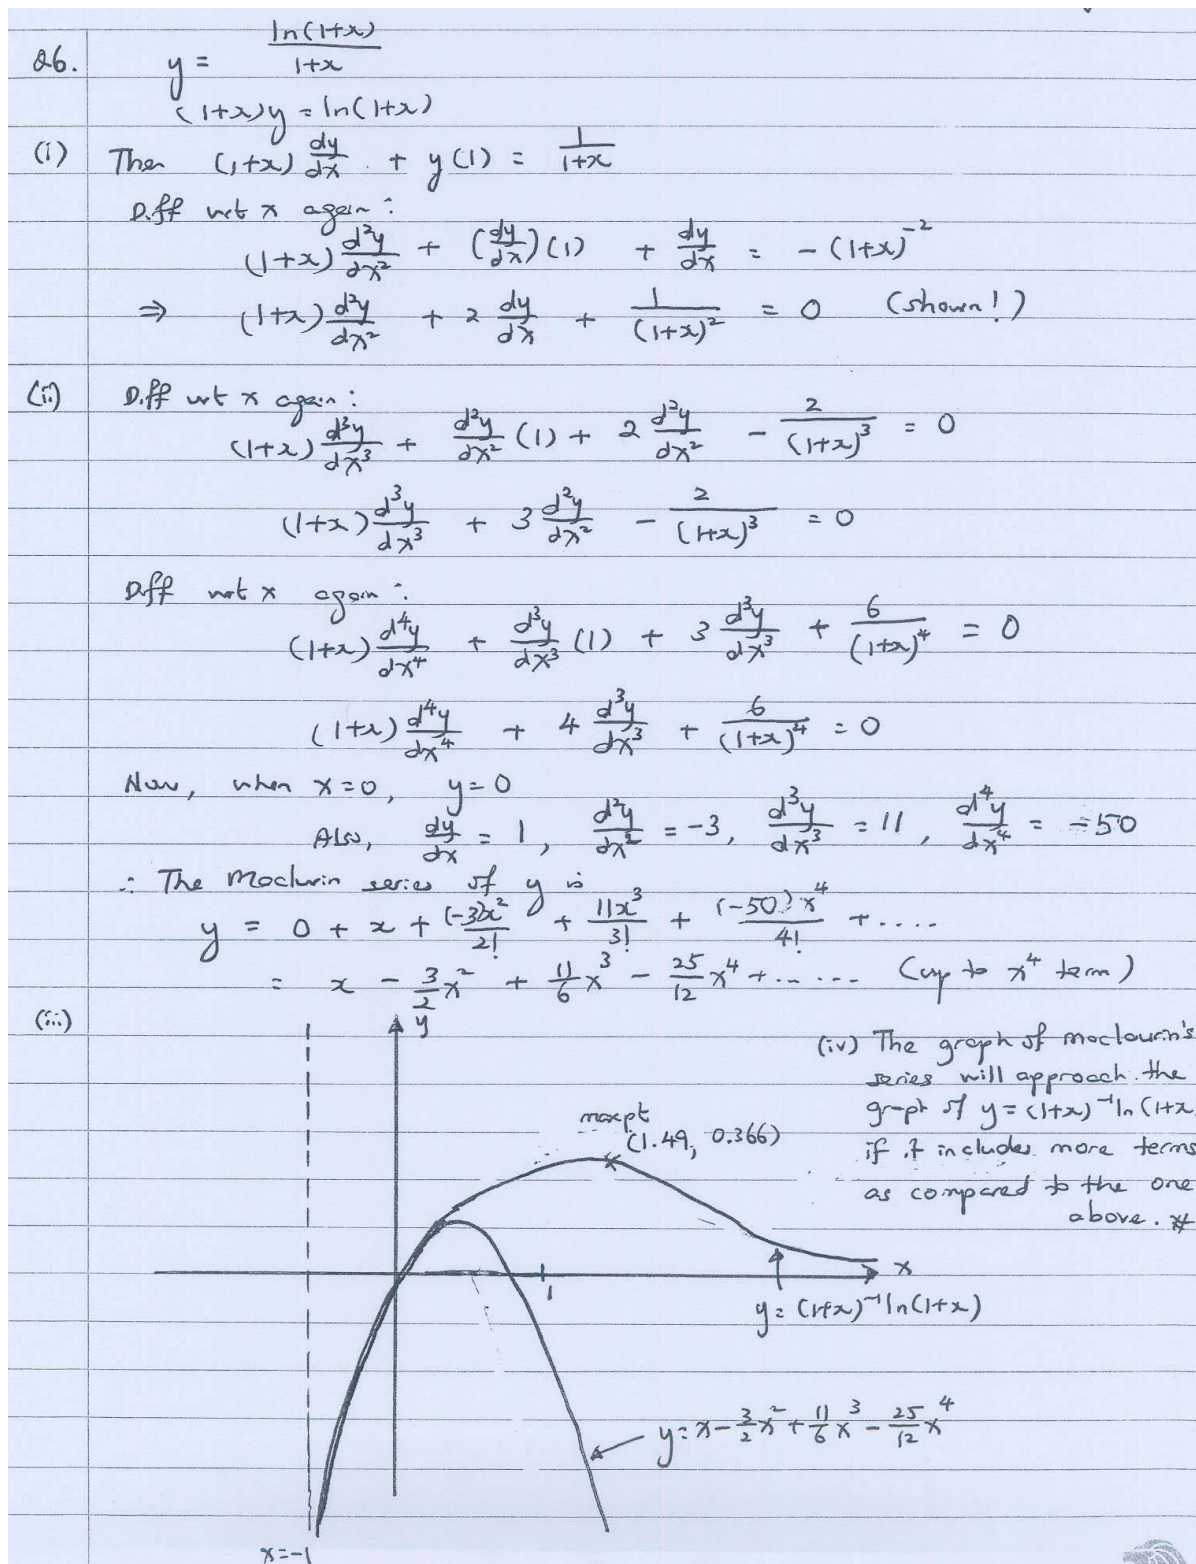 Q6. y = ln(1+x)/(1+x)
(1+x)y = ln(1+x)
(i) Then (1+x) dy/dx + y(1) = 1/(1+x)
Diff wrt x again:
(1+x) d²y/dx² + (dy/dx)(1) + dy/dx = -(1+x)⁻²
⇒ (1+x) d²y/dx² + 2 dy/dx + 1/(1+x)² = 0 (shown!)
(ii) Diff wrt x again:
(1+x) d³y/dx³ + d²y/dx² (1) + 2 d²y/dx² - 2/(1+x)³ = 0
(1+x) d³y/dx³ + 3 d²y/dx² - 2/(1+x)³ = 0
Diff wrt x again:
(1+x) d⁴y/dx⁴ + d³y/dx³ (1) + 3 d³y/dx³ + 6/(1+x)⁴ = 0
(1+x) d⁴y/dx⁴ + 4 d³y/dx³ + 6/(1+x)⁴ = 0
Now, when x=0, y=0
Also, dy/dx = 1, d²y/dx² = -3, d³y/dx³ = 11, d⁴y/dx⁴ = -50
∴ The Maclurin series of y is
y = 0 + x + (-3)x²/2! + 11x³/3! + (-50)x⁴/4! + ....
= x - 3/2 x² + 11/6 x³ - 25/12 x⁴ + ...... (up to x⁴ term)
(iii)
y
max pt
(1.49, 0.366)
x
1
y = (1+x)⁻¹ ln(1+x)
y = x - 3/2 x² + 11/6 x³ - 25/12 x⁴
x = -1
(iv) The graph of maclaurin's
series will approach the
graph of y = (1+x)⁻¹ ln(1+x
if it includes more terms
as compared to the one
above. #